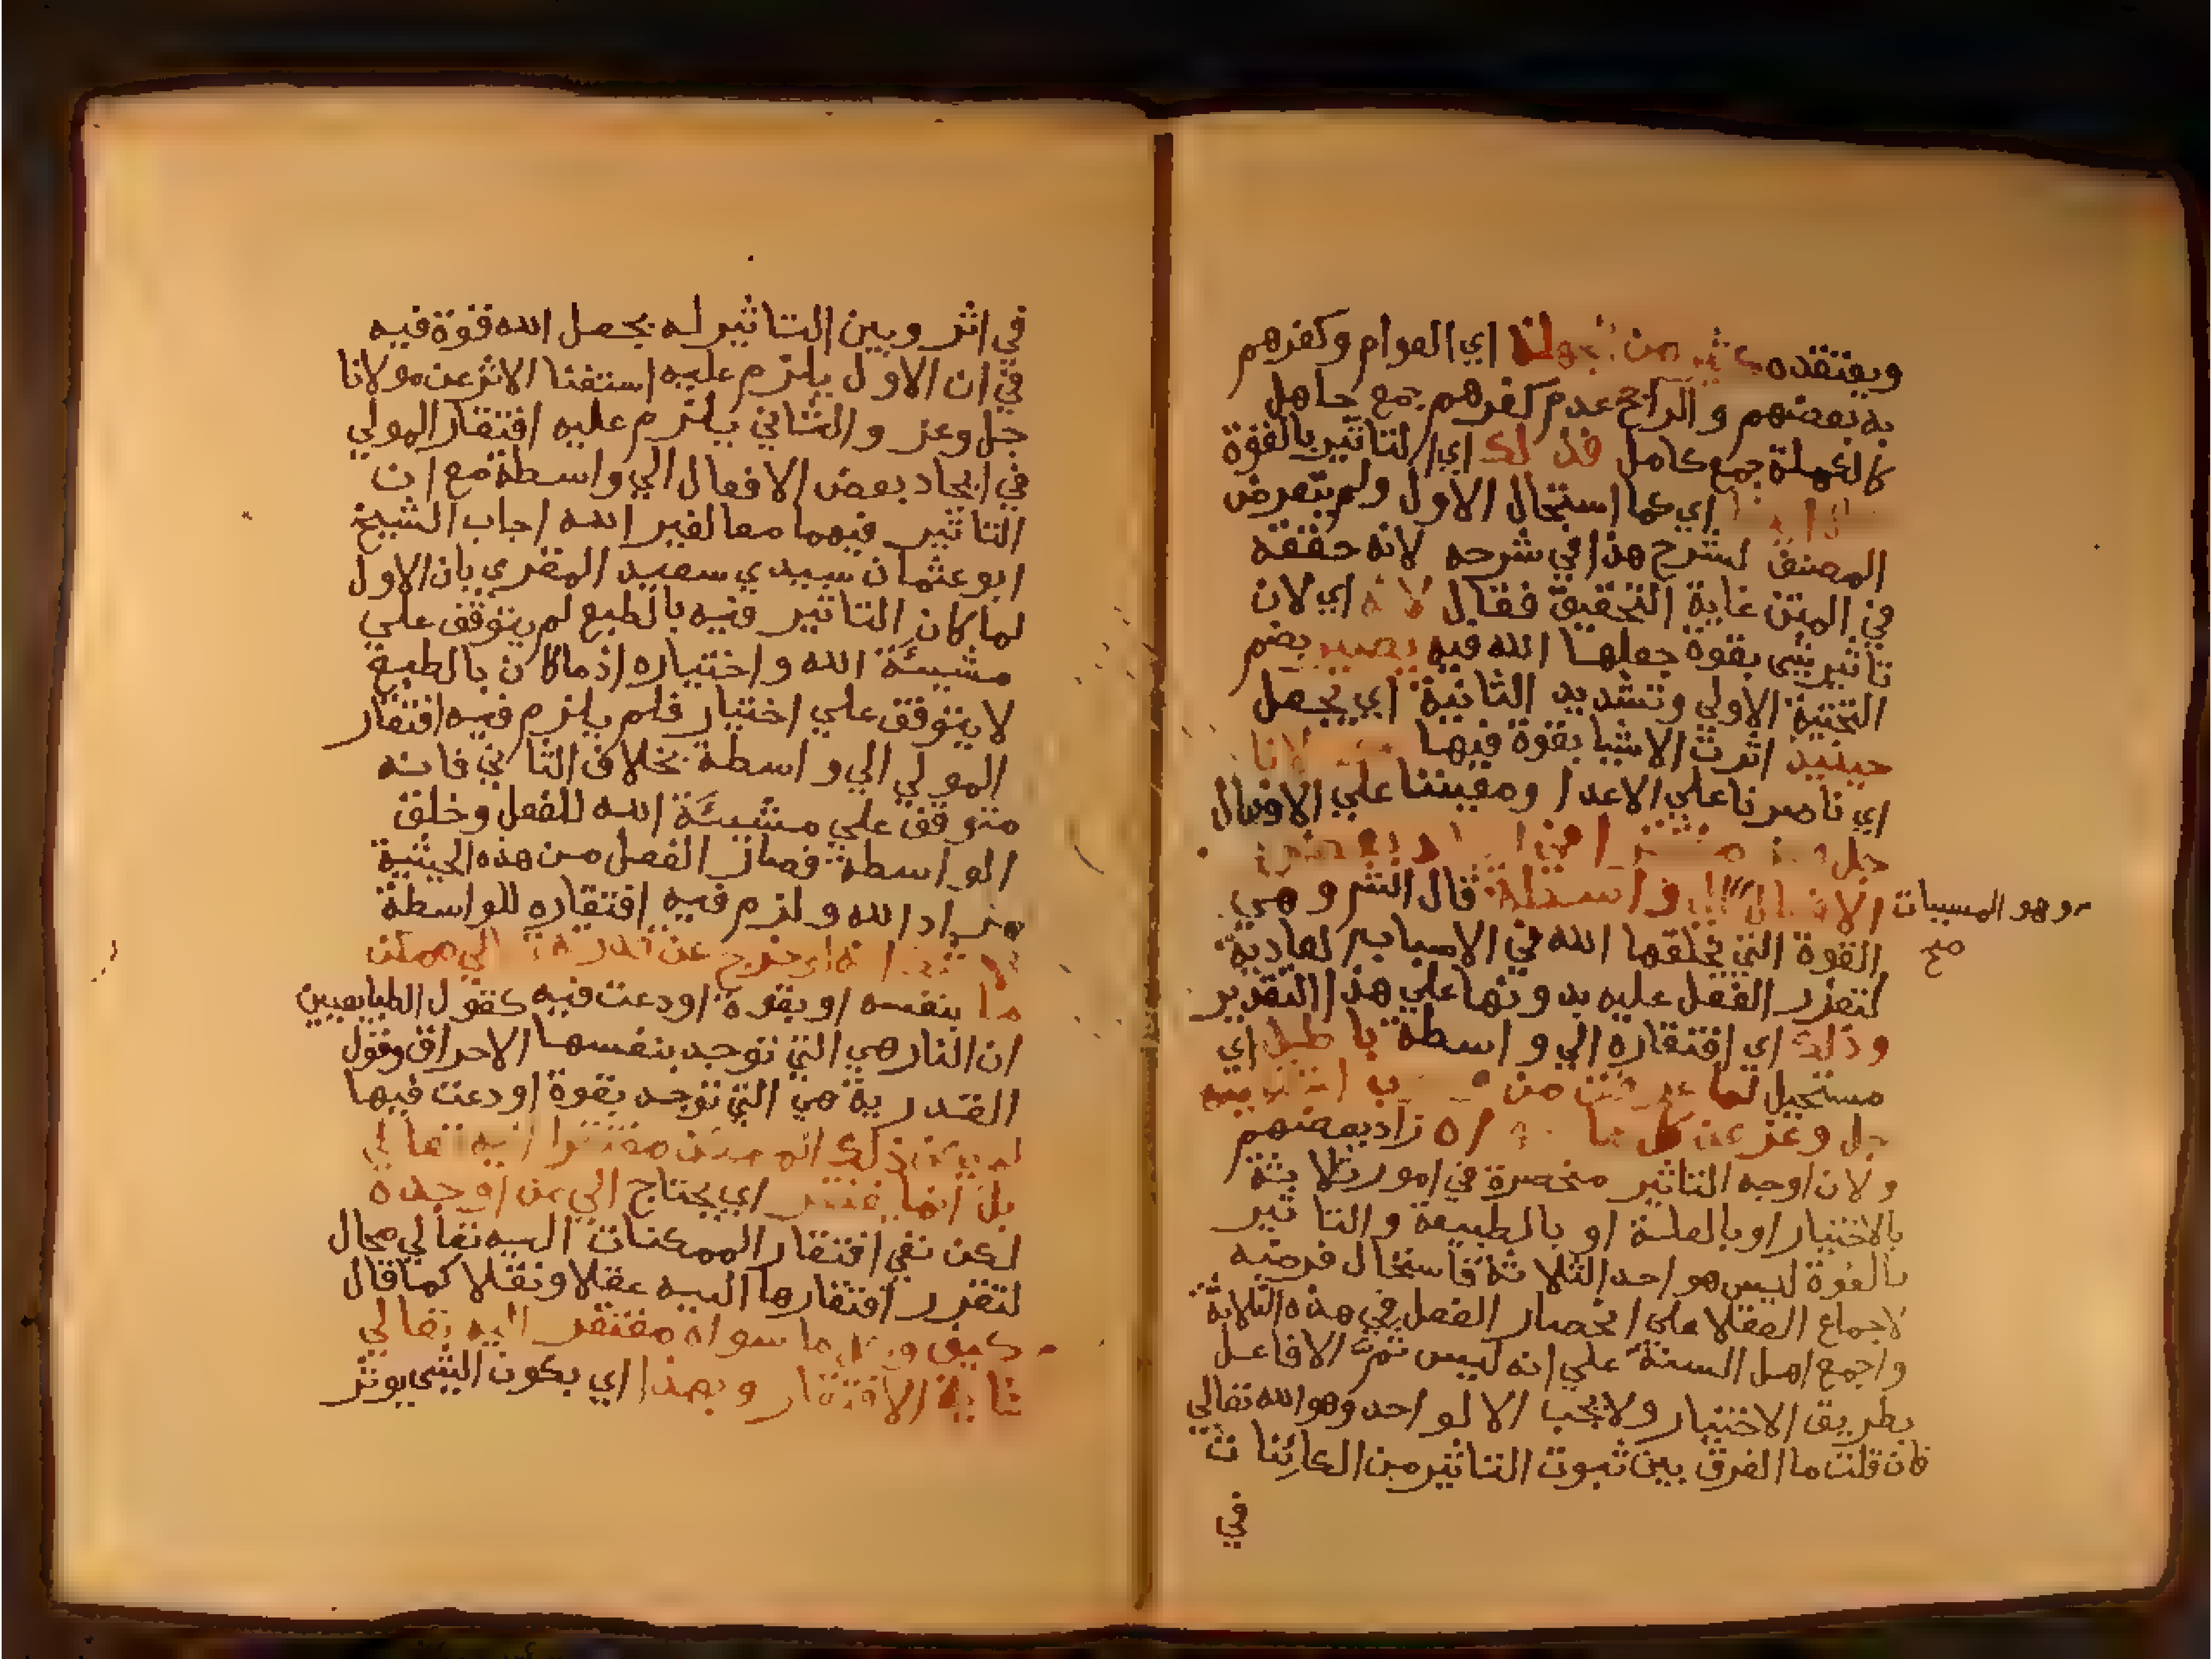 ويعتقده كثير من الجهلة اي العوام وكفرهم
به بعضهم والراجح عدم كفرهم جمع جاهل
كالكملة جمع كامل فذلك اي التاثير بالقوة
اي كما استحال الاول ولم يتعرض
المصنف لشرح هذا في شرحه لانه حققه
في المتن غاية التحقيق فقال لانه اي لان
تاثير شي بقوة جعلها الله فيه يصير بضم
التحتية الاولي وتشديد الثانية اي يجعل
حينيذ اثرت الاشيا بقوة فيها مولانا
اي ناصرنا علي الاعدا ومعيننا علي الافعال
جل وعز مفتقرا في ايجاد بعض
الافعال الي واسطة قال الشر وهي
وهو المسببات
صح
القوة التي يخلقها الله في الاسباب العادية
لتعذر الفعل عليه بدونها علي هذا التقدير
وذلك اي افتقاره الي واسطة باطل اي
مستحيل لما عرفت من
جل وعز عن كل ما سواه زاد بعضهم
ولان اوجه التاثير منحصرة في امور ثلاثة
بالاختيار او بالعلة او بالطبيعة والتاثير
بالقوة ليس هو احد الثلاثة فاستحال فرضه
لاجماع العقلا علي انحصار الفعل في هذه الثلاثة
واجمع اهل السنة علي انه ليس ثمت الا فاعل
بطريق الاختيار ولا يجب الا لواحد وهو الله تعالي
فان قلت ما الفرق بين ثبوت التاثير من الكائنات
في
في اثر وبين التاثير له بجعل الله قوة فيه
في ان الاول يلزم عليه استغنا الاثر عن مولانا
جل وعز والثاني يلزم عليه افتقار المولي
في ايجاد بعض الافعال الي واسطة مع ان
التاثير فيهما معا لغير الله اجاب الشيخ
ابو عثمان سيدي سعيد المقري بان الاول
لما كان التاثير فيه بالطبع لم يتوقف علي
مشيئة الله واختياره اذ ما كان بالطبع
لا يتوقف علي اختيار فلم يلزم فيه افتقار
المولي الي واسطة بخلاف الثاني فانه
متوقف علي مشيئة الله للفعل وخلق
الواسطة فصار الفعل من هذه الحيثية
مراد الله ولزم فيه افتقاره للواسطة
خرج عن قدرته ممكن
ما بنفسه او بقوة اودعت فيه كقول الطبايعيين
ان النار هي التي توجد بنفسها الاحراق وقول
القدرية هي التي توجد بقوة اودعت فيها
لم يكن ذلك الممكن مفتقرا اليه تعالي
بل انما يفتقر اي يحتاج الي من اوجده
لكن نفي افتقار الممكنات اليه تعالي محال
لتقرر افتقارها اليه عقلا ونقلا كما قال
كيف وكل ما سواه مفتقر اليه تعالي
غاية الافتقار وبهذا اي بكون الشي يوثر